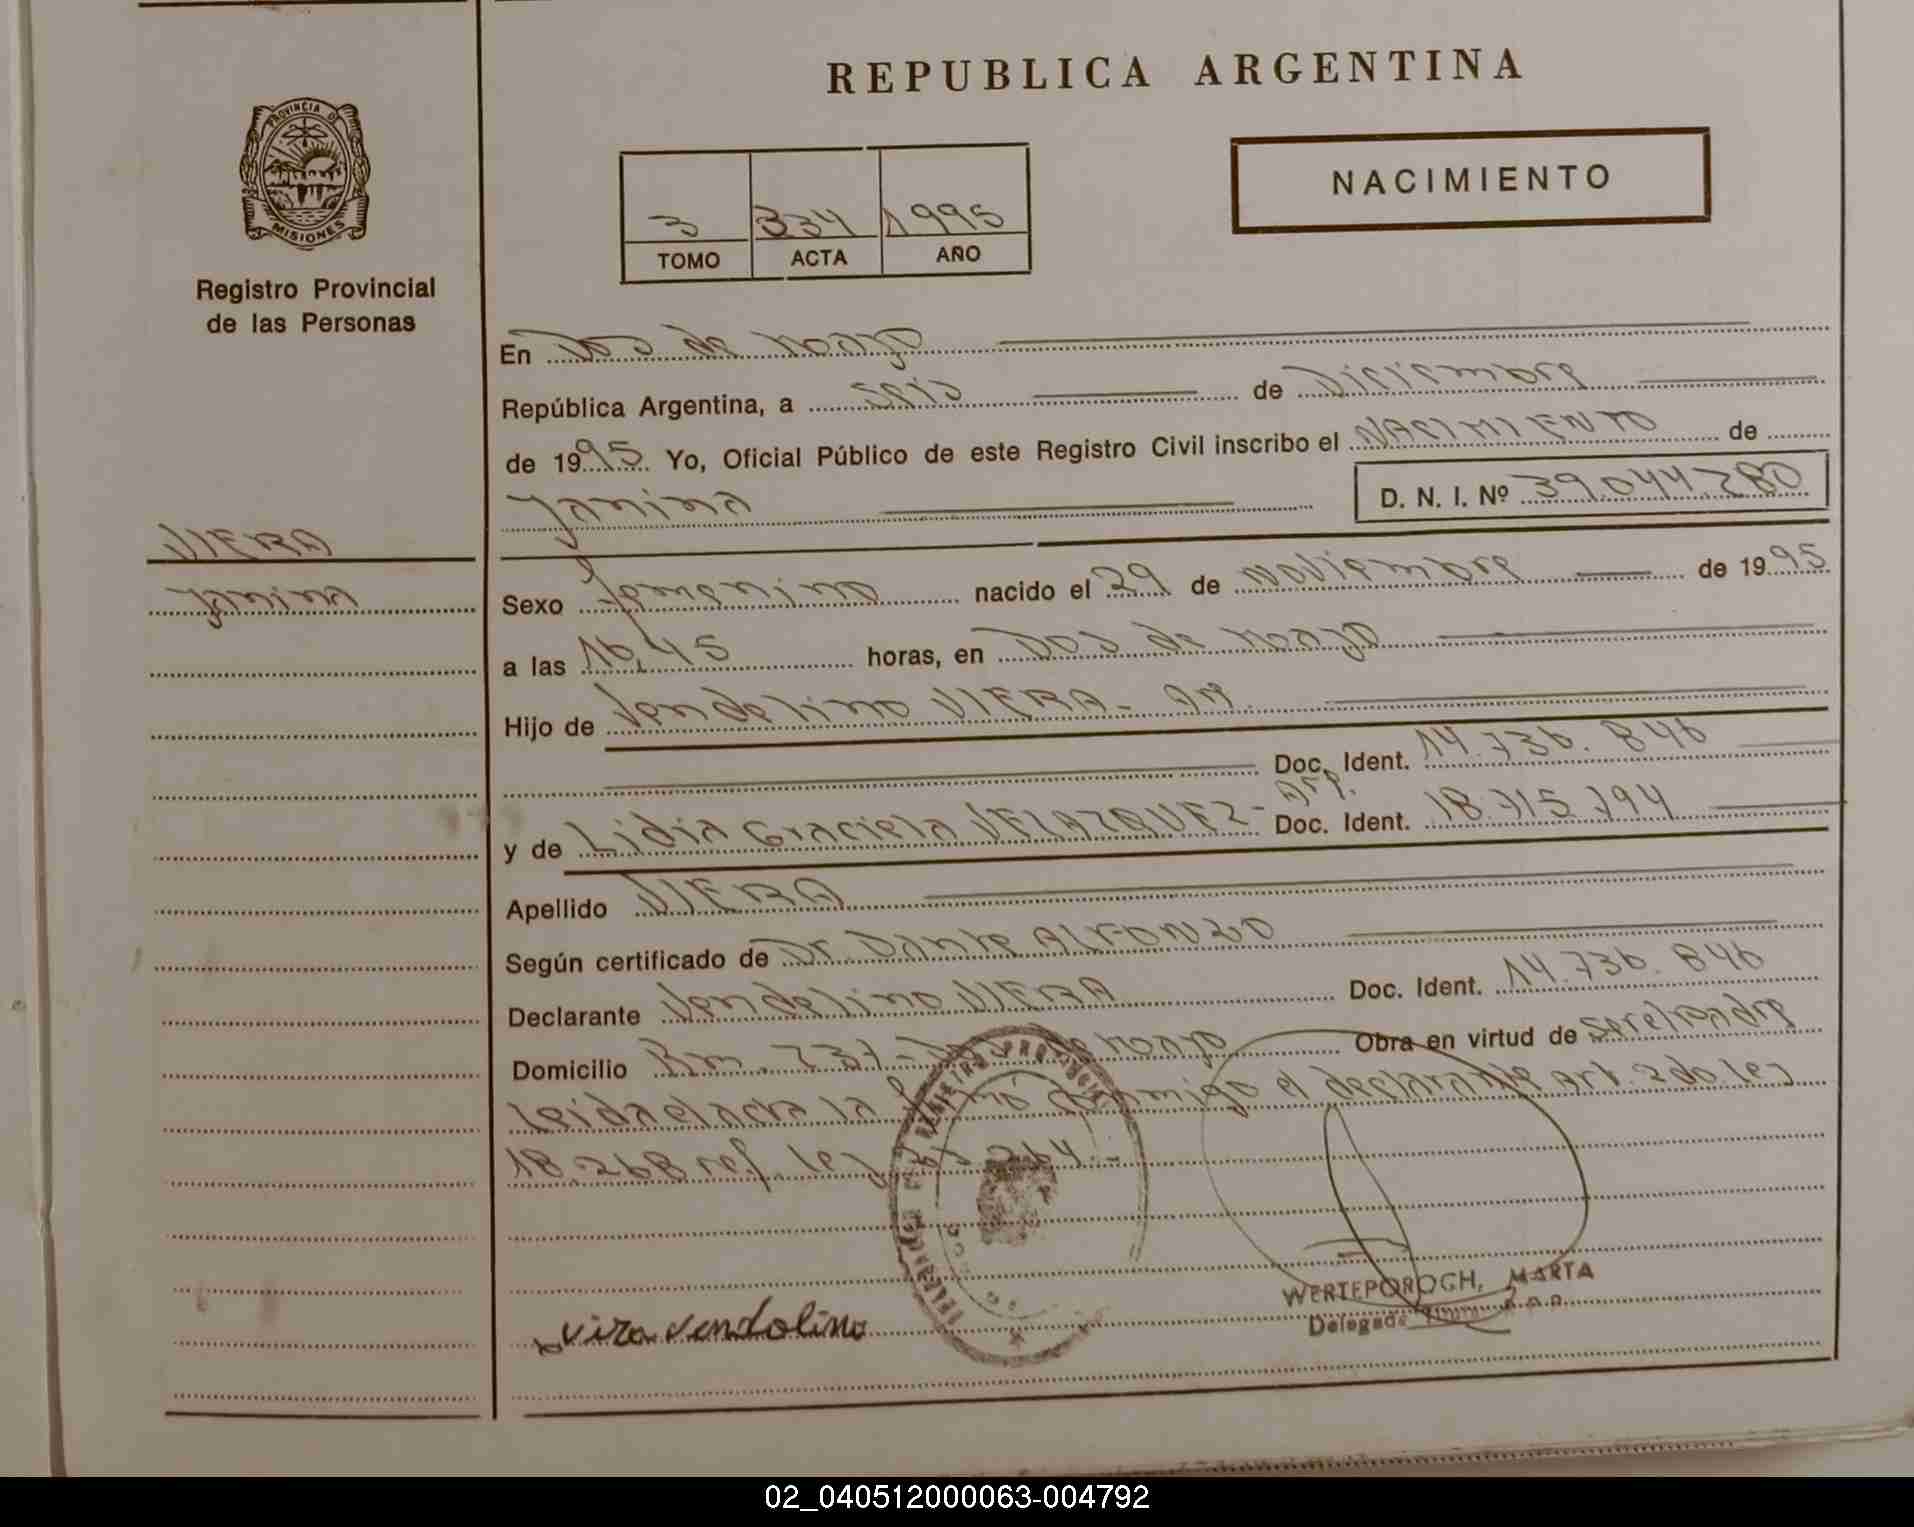 REPUBLICA ARGENTINA
PROVINCIA DE
MISIONES
Registro Provincial
de las Personas
NACIMIENTO
3 334 1995
TOMO ACTA AÑO
En Dos de Mayo
República Argentina, a seis de Diciembre
de 1995 Yo, Oficial Público de este Registro Civil inscribo el NACIMIENTO de
Yanina D. N. I. Nº 39.044.280
VIERA
Yanina
Sexo femenino nacido el 29 de noviembre de 1995
a las 16,45 horas, en Dos de Mayo
Hijo de Vendelino VIERA- Arg.
Doc. Ident. 14.736.846
y de Lidia Graciela VELAZQUEZ- Arg. Doc. Ident. 18.715.794
Apellido VIERA
Según certificado de Dr. Dante ALFONZO
Declarante Vendelino VIERA Doc. Ident. 14.736.846
Domicilio Km. 237- Dos de Mayo Obra en virtud de ser el padre
leida el acta la firmó conmigo el declarante art. 2do. ley
18.268 ref. ley
vira vendolino
WERTEPOROCH, MARTA
Delegada
02_040512000063-004792